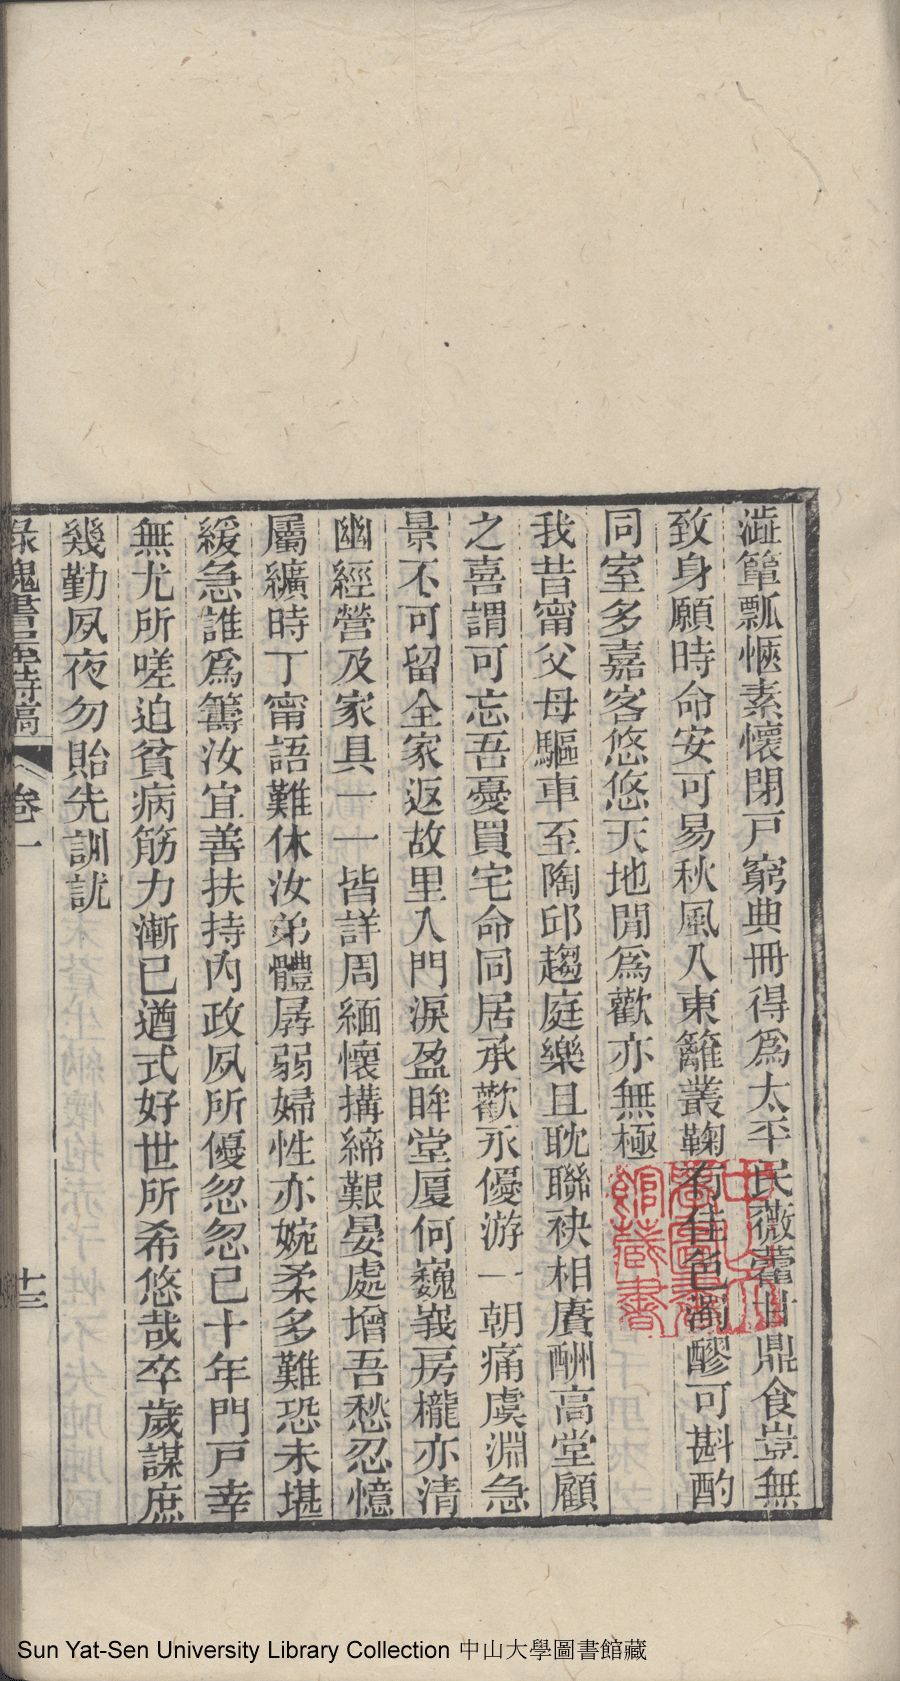 澁簞瓢愜素懷閉戸窮典冊得爲太平民薇藿甘鼎食豈無
致身願時命安可易秋風入東籬叢鞠有佳色濁醪可斟酌
同室多嘉客悠悠天地閒爲歡亦無極
我昔甯父母驅車至陶邱趨庭樂且耽聯袂相賡酬高堂顧
之喜謂可忘吾憂買宅命同居承歡永優游一朝痛虞淵急
景不可留全家返故里入門淚盈眸堂厦何巍峩房櫳亦清
幽經營及家具一一皆詳周緬懷搆締艱晏處增吾愁忍憶
屬纊時丁甯語難休汝弟體孱弱婦性亦婉柔多難恐未堪
緩急誰爲籌汝宜善扶持內政夙所優忽忽已十年門戸幸
無尤所嗟迫貧病筋力漸已遒式好世所希悠哉卒歲謀庶
幾勤夙夜勿貽先訓訧
綠槐書屋詩稿 卷一 十三
中山大學圖書館藏書
Sun Yat-Sen University Library Collection 中山大學圖書館藏